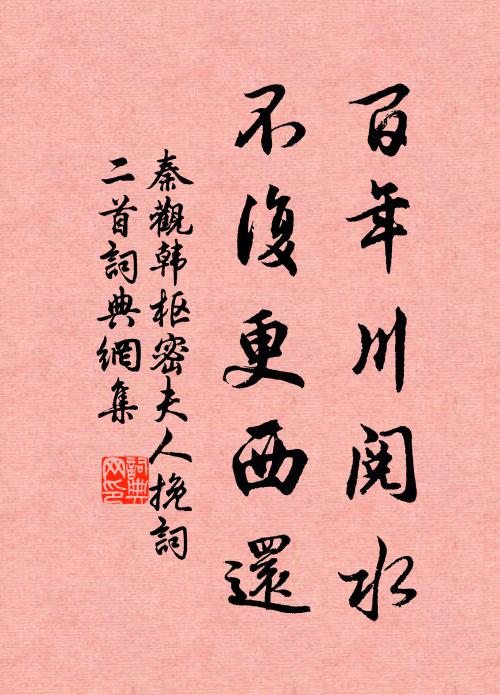 百年川閱水
不復更西還
秦觀韩枢密夫人挽詞
二首詞典網集
詞典网印